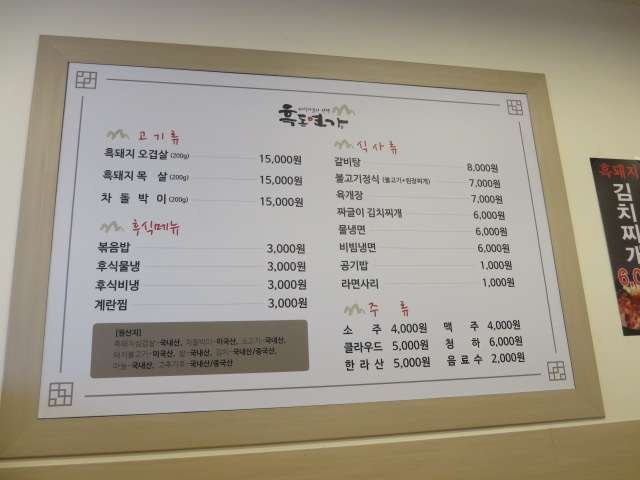 흑돈연가
고기류
흑돼지 오겹살 (200g) 15,000원
흑돼지 목 살 (200g) 15,000원
차 돌 박 이 (200g) 15,000원
후식메뉴
볶음밥 3,000원
후식물냉 3,000원
후식비냉 3,000원
계란찜 3,000원
[원산지]
흑돼지오겹살-국내산, 차돌박이-미국산, 소고기-국내산,
돼지불고기-미국산, 쌀-국내산, 김치-국내산/중국산,
마늘-국내산, 고추가루-국내산/중국산
식사류
갈비탕 8,000원
불고기정식 (불고기+된장찌개) 7,000원
육개장 7,000원
짜글이 김치찌개 6,000원
물냉면 6,000원
비빔냉면 6,000원
공기밥 1,000원
라면사리 1,000원
주 류
소 주 4,000원 맥 주 4,000원
클라우드 5,000원 청 하 6,000원
한 라 산 5,000원 음 료 수 2,000원
흑돼지
김
치
찌
개
6,0